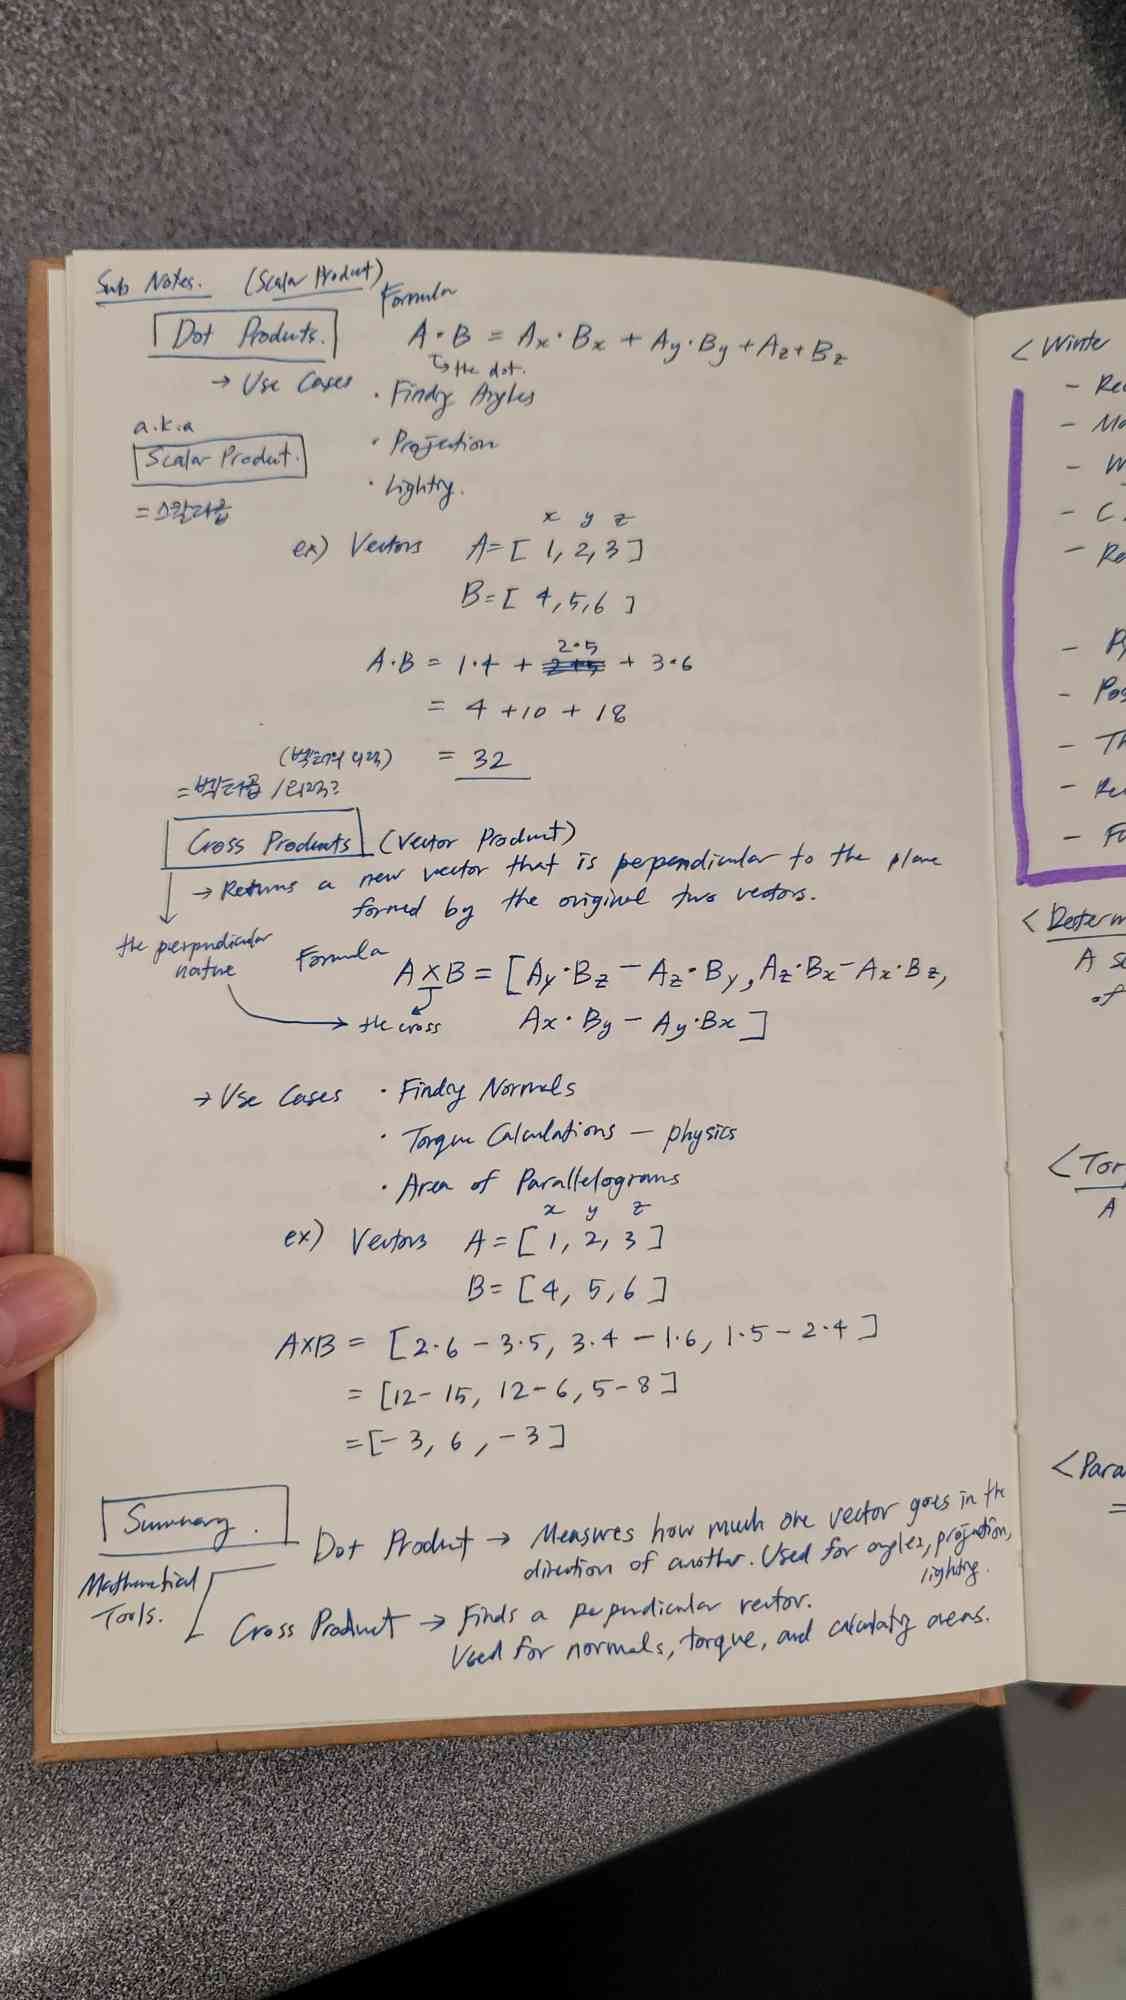 Sub Notes. (Scalar Product)
Formula
Dot Products.
A · B = Ax · Bx + Ay · By + Az + Bz
the dot.
→ Use Cases
· Finding Angles
a.k.a
· Projection
Scalar Product.
· Lighting.
= 스칼라곱
x y z
ex) Vectors A = [ 1, 2, 3 ]
B = [ 4, 5, 6 ]
2·5
A·B = 1·4 + 2+5 + 3·6
= 4 + 10 + 18
(벡터의 외적)
= 32
= 벡터곱 /
Cross Products (Vector Product)
→ Returns a new vector that is perpendicular to the plane
formed by the original two vectors.
the perpendicular
nature
Formula
A X B = [ Ay · Bz − Az · By, Az · Bx − Ax · Bz,
the cross
Ax · By − Ay · Bx ]
→ Use Cases · Finding Normals
· Torque Calculations − physics
· Area of Parallelograms
x y z
ex) Vectors A = [ 1, 2, 3 ]
B = [ 4, 5, 6 ]
AXB = [ 2·6 − 3·5, 3·4 − 1·6, 1·5 − 2·4 ]
= [12 − 15, 12 − 6, 5 − 8 ]
= [− 3, 6, − 3 ]
Summary.
Dot Product → Measures how much one vector goes in the
direction of another. Used for angles, projection,
lighting.
Mathematical
Tools.
Cross Product → Finds a perpendicular vector.
Used for normals, torque, and calculating areas.
< Winte
- Re
- Mo
- W
- C
- Re
- Py
- Pos
- Th
- Re
- Fu
< Determ
A s
of
< Tor
A
< Para
=